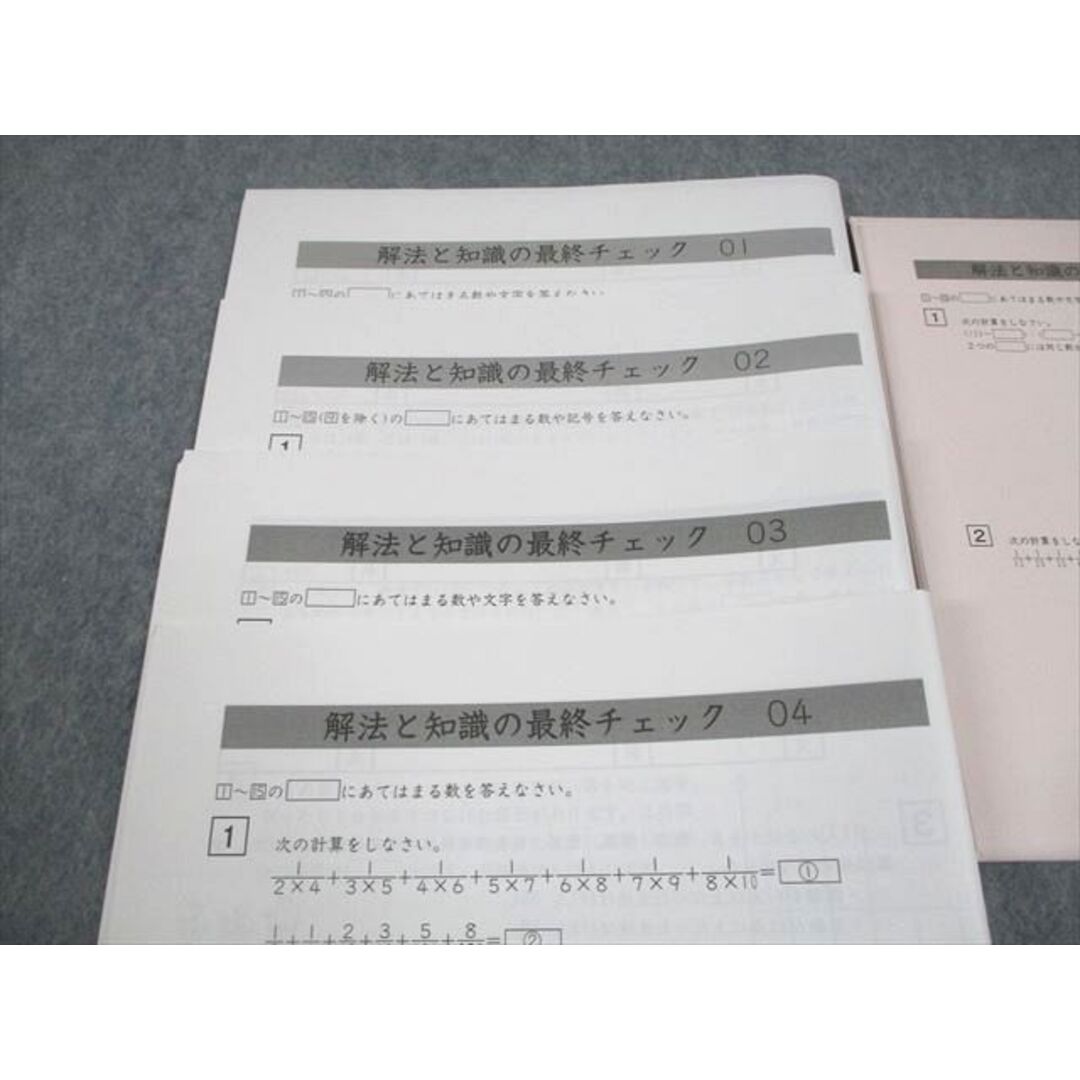 解法と知識の最終チェック 01
解法と知識の最終チェック 02
1～15(12を除く)の□にあてはまる数や記号を答えなさい。
1
解法と知識の最終チェック 03
1～15の□にあてはまる数や文字を答えなさい。
解法と知識の最終チェック 04
1～15の□にあてはまる数を答えなさい。
1 次の計算をしなさい。
1/2×4 + 1/3×5 + 1/4×6 + 1/5×7 + 1/6×8 + 1/7×9 + 1/8×10 = ①
解法と知識の
1 次の計算をしなさい。
2つの□には同じ数が
2 次の計算をしな